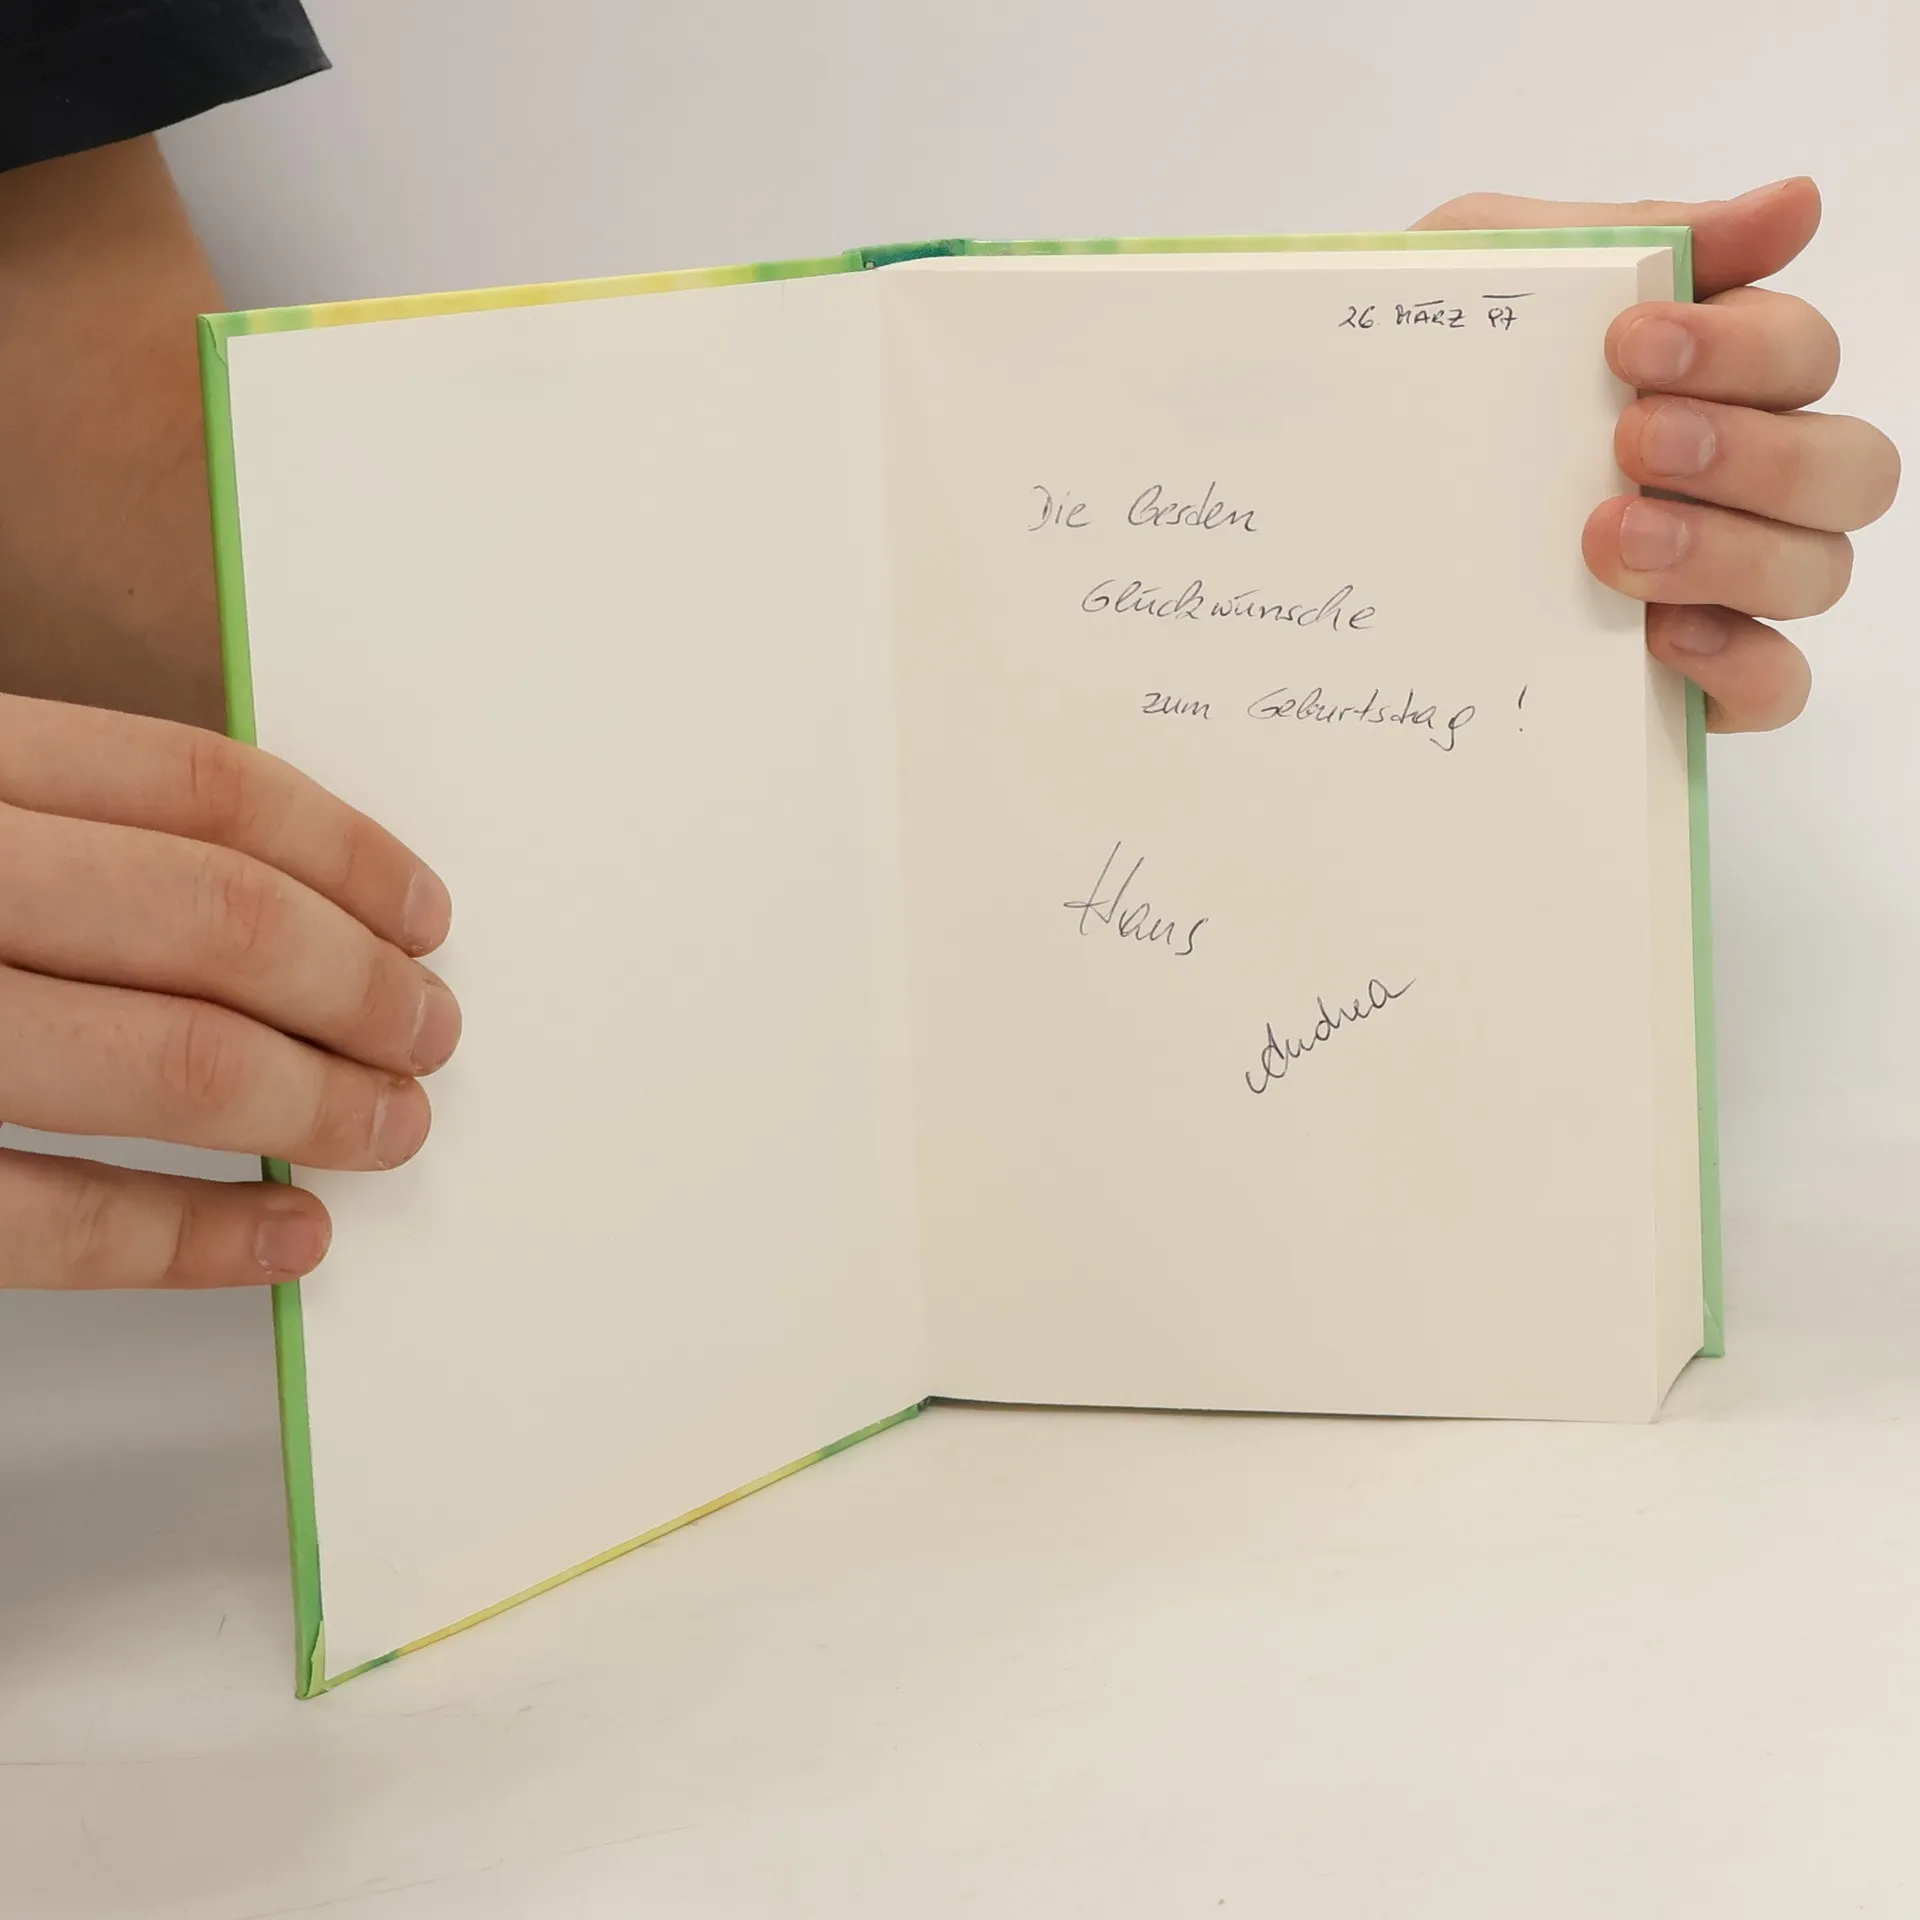 26. MÄRZ 97
Die Besten
Glückwünsche
zum Geburtstag !
Hans
Andrea